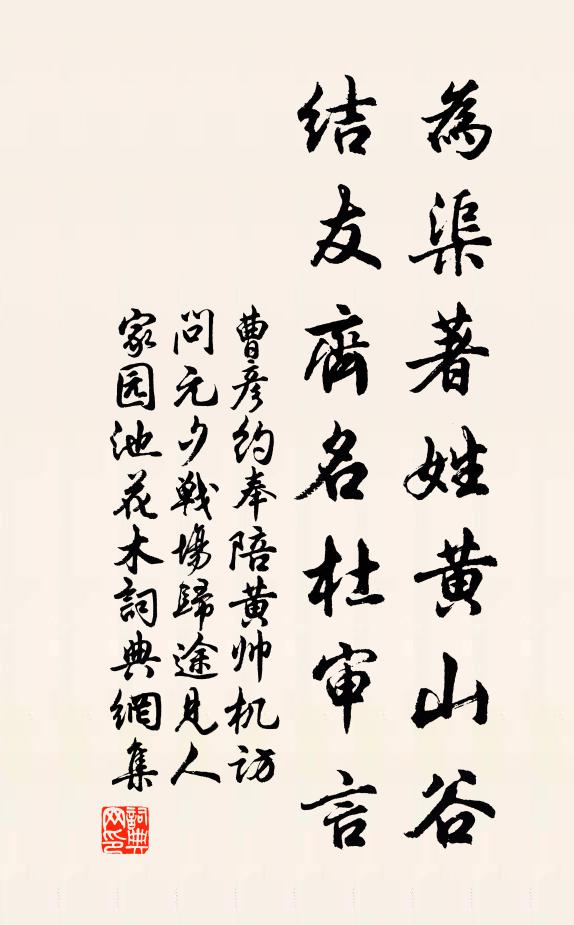 為渠著姓黄山谷
结友齊名杜审言
曹彦约奉陪黄帅机访
问元夕戰場歸途見人
家园池花木詞典網集
詞典网印